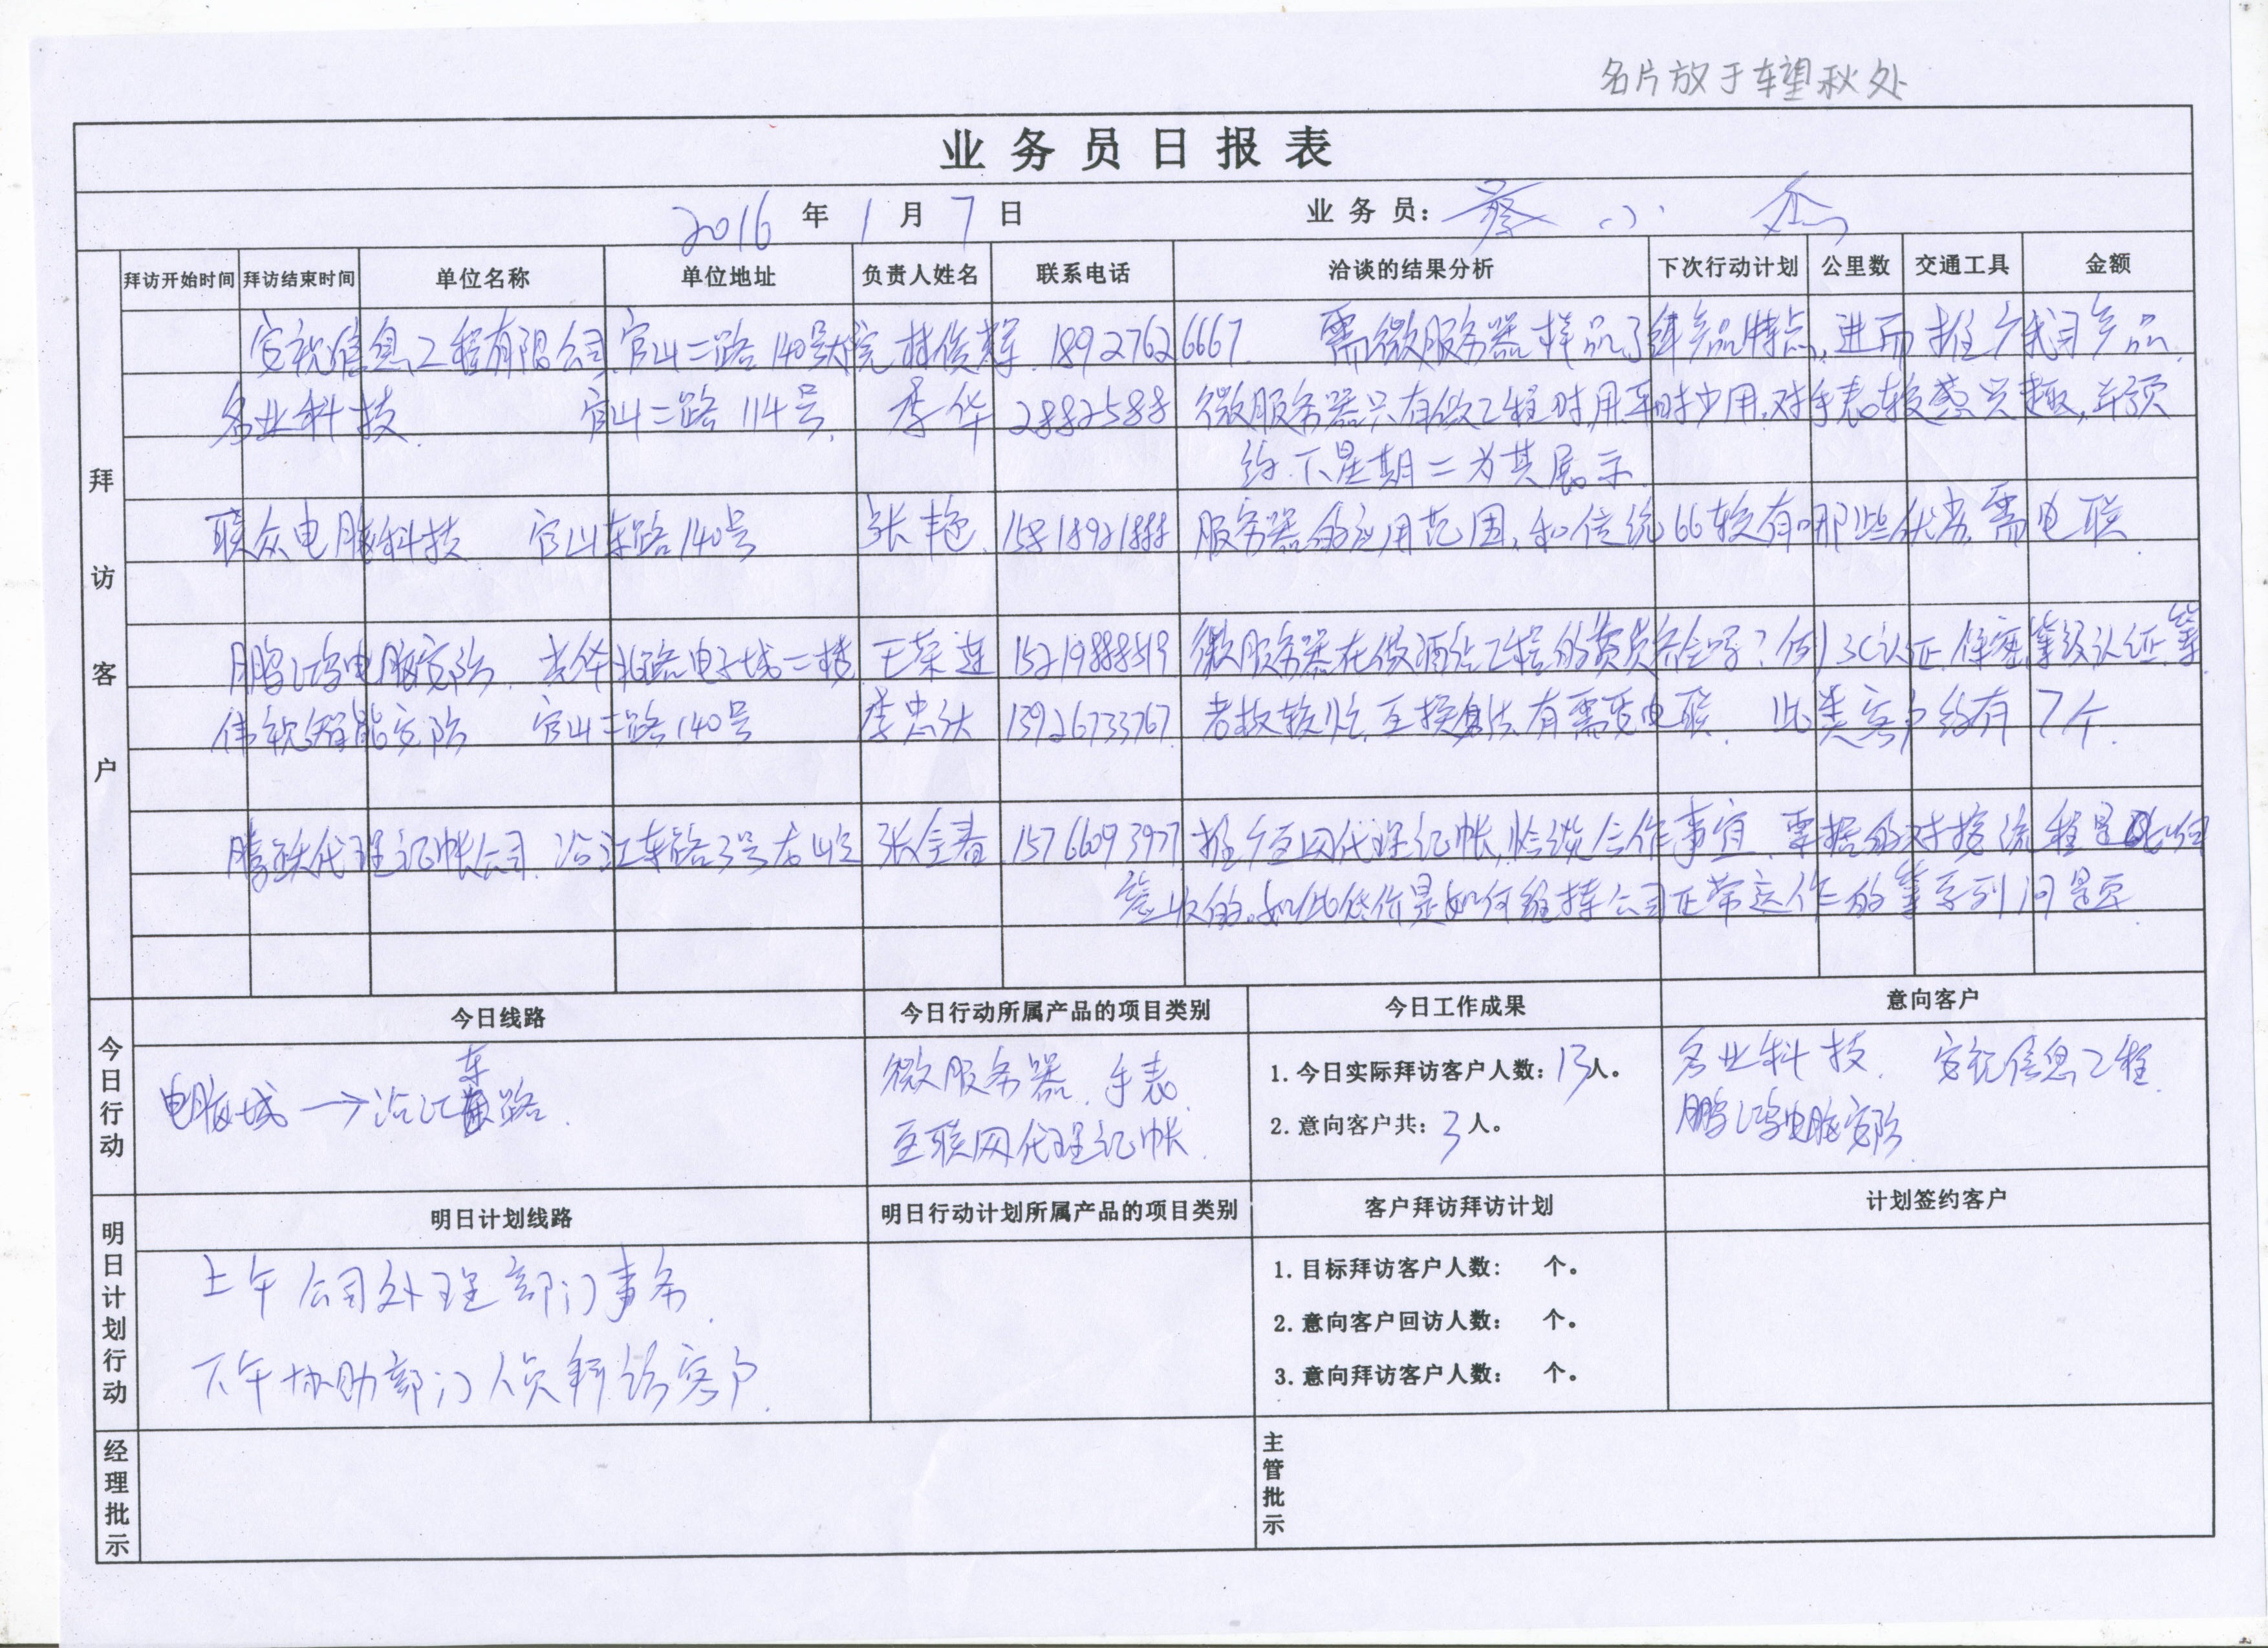 名片放于车望秋处
业务员日报表
2016 年 1 月 7 日 业务员: 蔡小杰
拜访开始时间 拜访结束时间 单位名称 单位地址 负责人姓名 联系电话 洽谈的结果分析 下次行动计划 公里数 交通工具 金额
拜访客户
安视信息工程有限公司 官山二路140号大院 林俊辉 18927626667 需微服务器样品了解产品特点,进而推广我司产品
名业科技 官山二路114号 李华 2882588 微服务器只有做工程时用,平时少用,对手表较感兴趣,并预
约下星期二为其展示
联众电脑科技 官山东路140号 张艳 15818921888 服务器的应用范围,和传统66较有哪些优劣,需电联
鹏鸿电脑安防 光华北路电子城二楼 王荣莲 15219888519 微服务器在做酒店工程的资质齐全吗?例3C认证,保密等级认证等
伟视智能安防 官山二路140号 李忠 13926733767 老板较忙,互换名片,有需要电联 此类客户约有7个
腾跃代理记帐公司 沿江东路3号 张金春 15766093977 推广互网代理记帐,洽谈合作事宜,票据的对接流程是如何
签收的,如此低价是如何维持公司正常运作的等系列问题
今日行动
今日线路 今日行动所属产品的项目类别 今日工作成果 意向客户
电脑城→沿江东路
微服务器、手表
互联网代理记帐
1.今日实际拜访客户人数:13人。
2.意向客户共:3人。
名业科技、安视信息工程
鹏鸿电脑安防
明日计划行动
明日计划线路 明日行动计划所属产品的项目类别 客户拜访拜访计划 计划签约客户
上午公司处理部门事务
下午协助部门人员拜访客户
1.目标拜访客户人数: 个。
2.意向客户回访人数: 个。
3.意向拜访客户人数: 个。
经理批示
主管批示